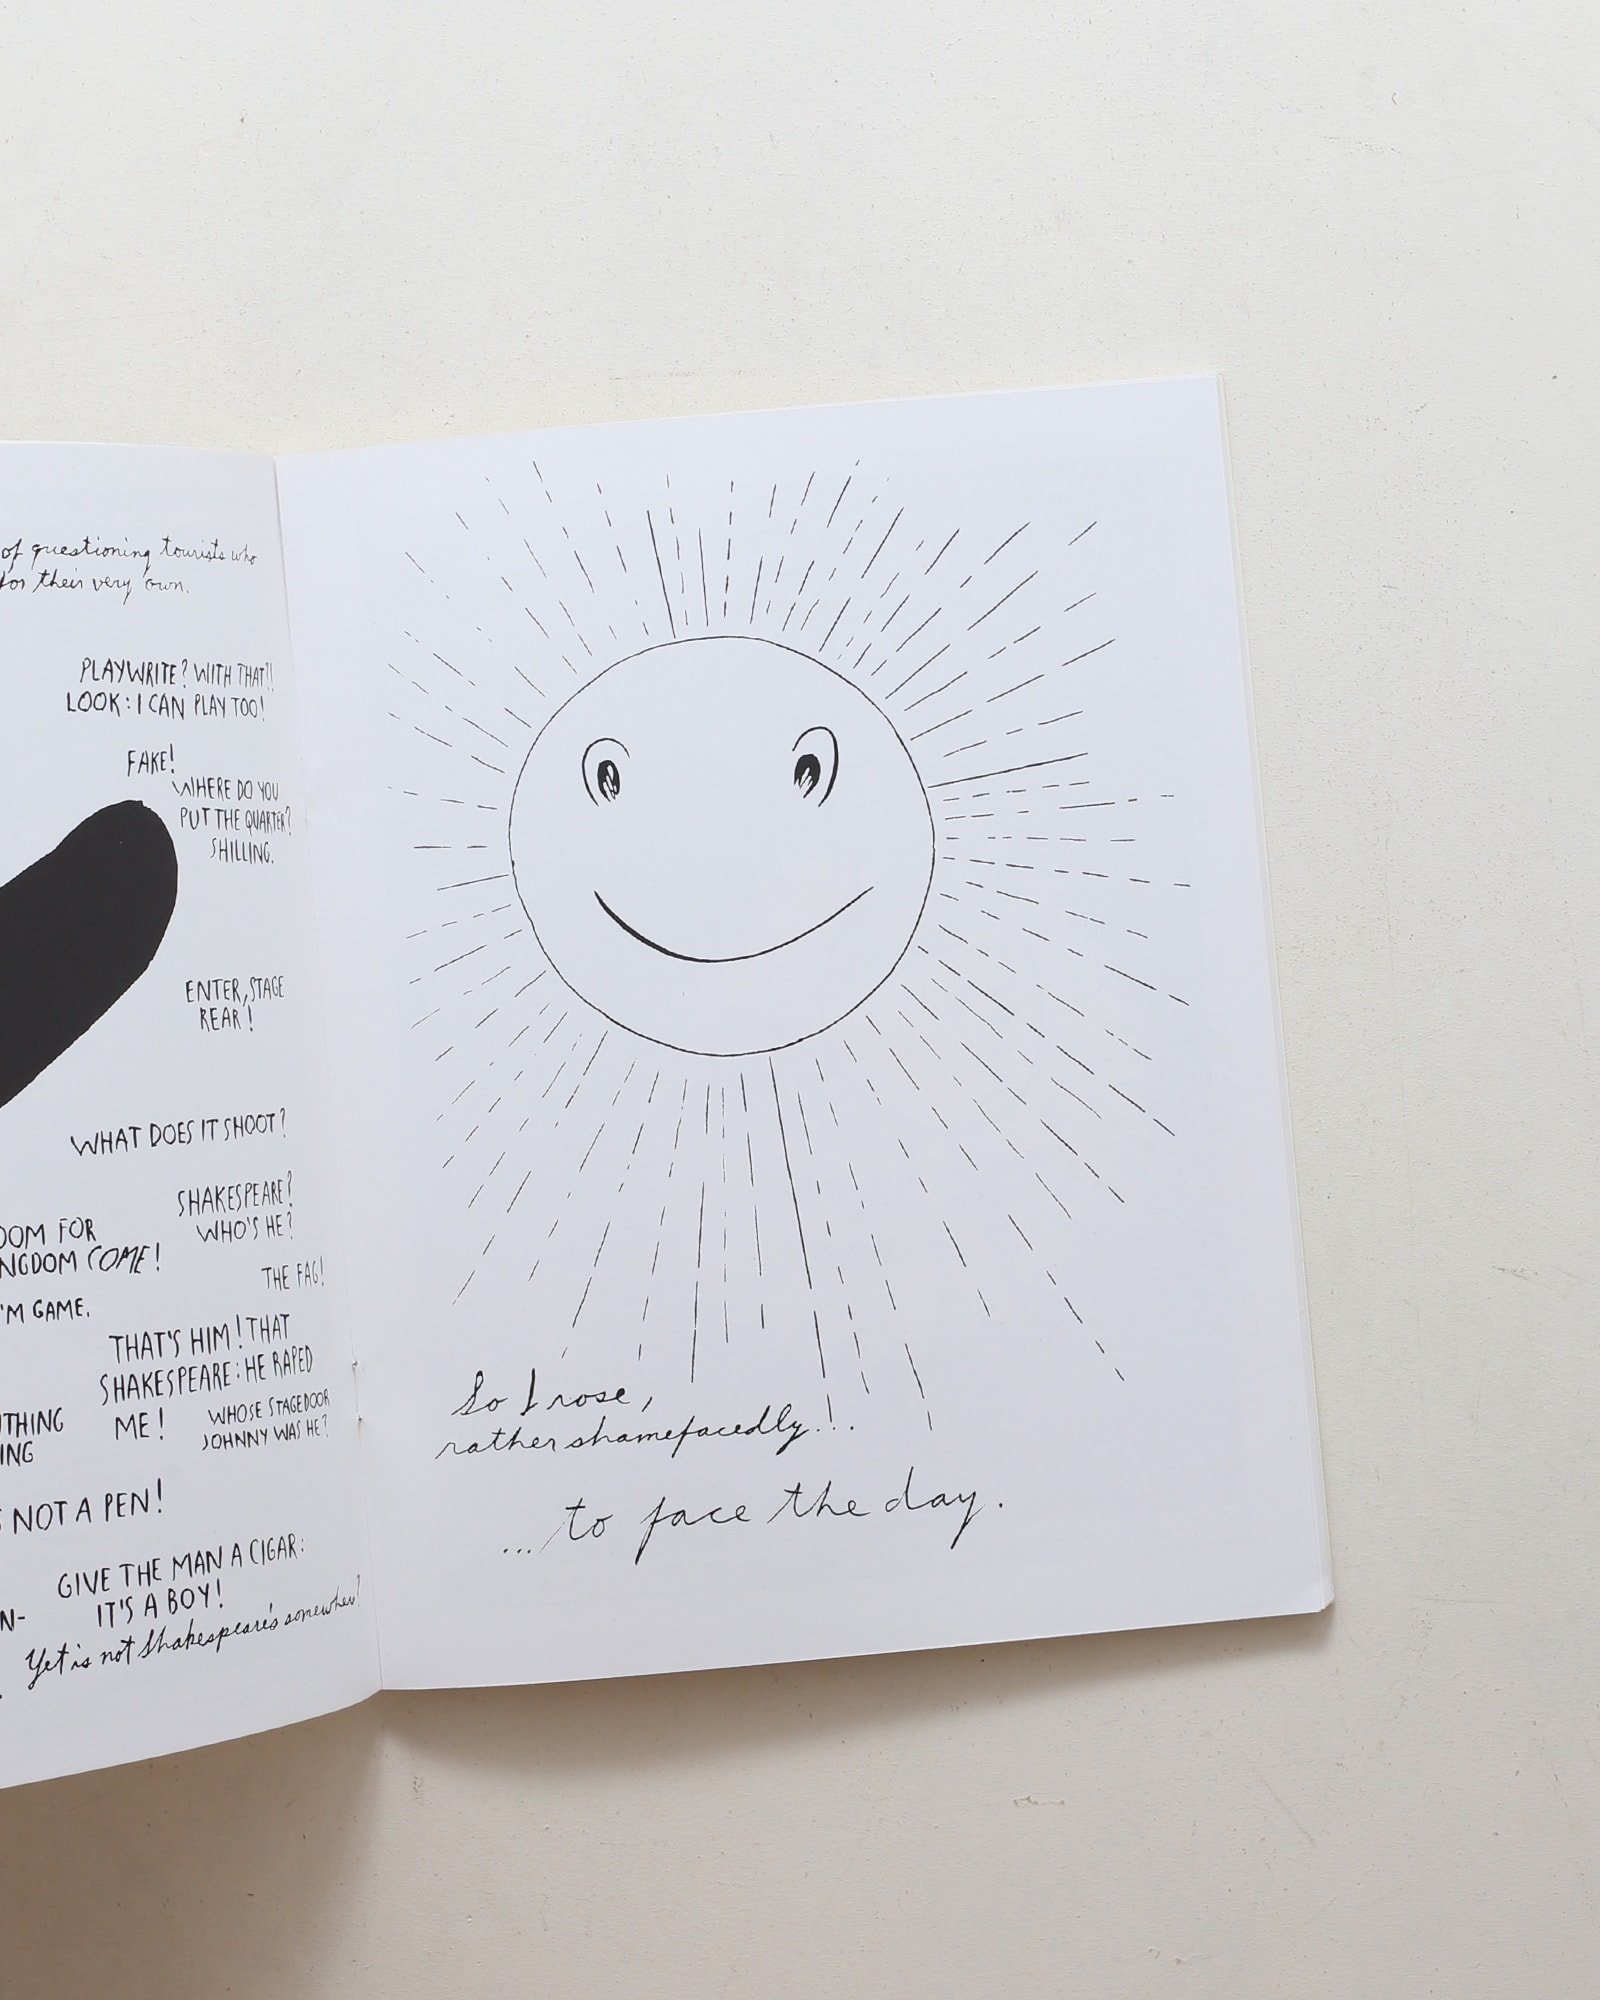 of questioning tourists who
for their very own.
PLAYWRITE? WITH THAT?!
LOOK: I CAN PLAY TOO!
FAKE!
WHERE DO YOU
PUT THE QUARTER?
SHILLING.
ENTER, STAGE
REAR!
WHAT DOES IT SHOOT?
SHAKESPEARE?
WHO'S HE?
OOM FOR
NGDOM COME!
THE FAG!
'M GAME.
THAT'S HIM! THAT
SHAKESPEARE: HE RAPED
ME!
WHOSE STAGEDOOR
JOHNNY WAS HE?
THING
ING
S NOT A PEN!
GIVE THE MAN A CIGAR:
IT'S A BOY!
N-
Yet is not Shakespeare's somewhen?
So I rose,
rather shamefacedly...!
... to face the day.